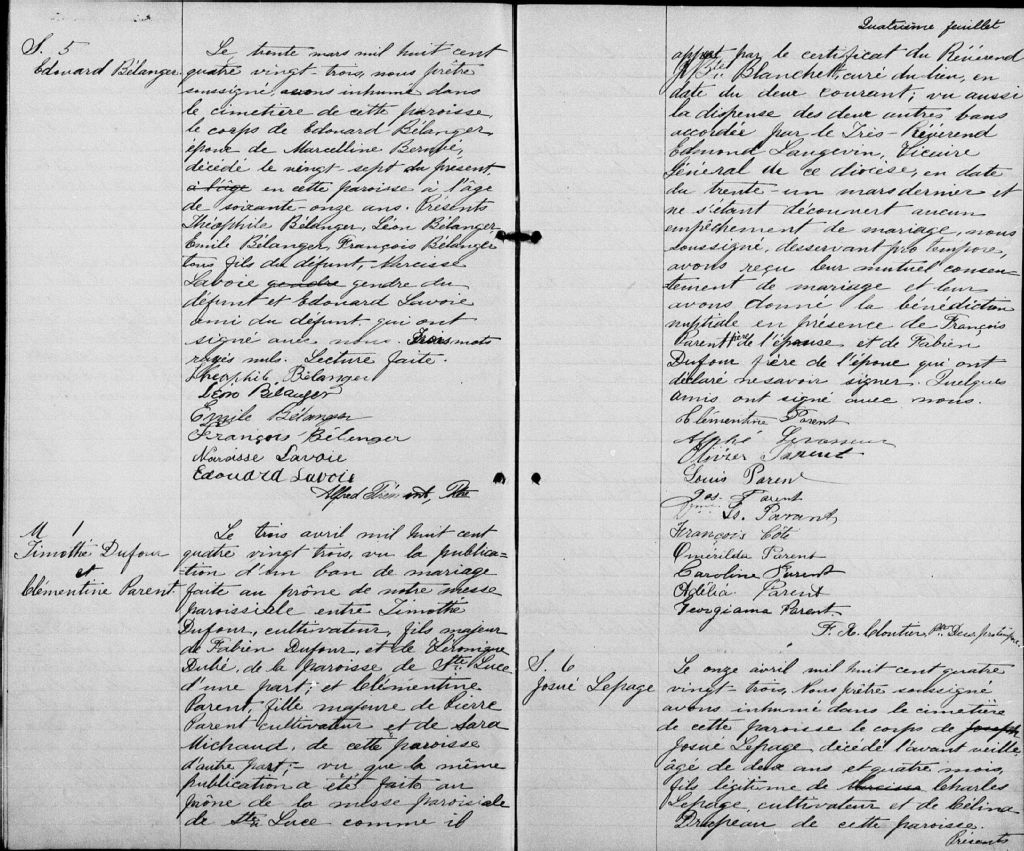 S. 5
Edouard Bélanger
Le trente mars mil huit cent
quatre vingt-trois, nous prêtre
soussigné, avons inhumé dans
le cimetière de cette paroisse
le corps de Edouard Bélanger
époux de Marcelline Bernié,
décédé le vingt-sept du présent
à l'âge en cette paroisse à l'âge
de soixante-onze ans. Présents
Théophile Bélanger, Léon Bélanger
Emile Bélanger, François Bélanger
tous fils du défunt, Narcisse
Lavoie gendre gendre du
défunt et Edouard Lavoie
ami du défunt qui ont
signé avec nous. Trois mots
rayés nuls. Lecture faite.
Théophile Bélanger
Léon Bélanger
Emile Bélanger
François Bélanger
Narcisse Lavoie
Edouard Lavoie
Alfred Ptre
M 1
Timothé Dufour
et
Clémentine Parent
Le trois avril mil huit cent
quatre vingt trois, vu la publica-
tion d'un ban de mariage
faite au prône de notre messe
paroissiale entre Timothé
Dufour, cultivateur, fils majeur
de Fabien Dufour, et de Véronique
Dubé, de la paroisse de Ste Luce
d'une part; et Clémentine
Parent, fille majeure de Pierre
Parent cultivateur et de Sara
Michaud, de cette paroisse
d'autre part;- vu que la même
publication a été faite au
prône de la messe paroissiale
de Ste Luce comme il
Quatrième feuillet
appert par le certificat du Révérend
J Bte Blanchet, curé du lieu, en
date du deux courant; vu aussi
la dispense des deux autres bans
accordée par le Très-Révérend
Edmond Langevin, Vicaire
Général de ce diocèse, en date
du trente-un mars dernier et
ne s'étant découvert aucun
empêchement de mariage, nous
soussigné, desservant pro tempore,
avons reçu leur mutuel consen-
tement de mariage et leur
avons donné la bénédiction
nuptiale en présence de François
Parent frère de l'épouse et de Fabien
Dufour père de l'époux qui ont
déclaré ne savoir signer. Quelques
amis ont signé avec nous.
Clémentine Parent
Alphé Levasseur
Olivier Parent
Louis Parent
Jos. Parent
Ls. Parant
François Côté
Omérilda Parent
Caroline Parent
Adélia Parent
Georgiana Parent
F. X. Cloutier, Ptre Desst pro tempore
S. 6
Josué Lepage
Le onze avril mil huit cent quatre
vingt-trois, Nous prêtre soussigné
avons inhumé dans le cimetière
de cette paroisse le corps de Joseph
Josué Lepage, décédé l'avant veille,
âgé de deux ans et quatre mois,
fils légitime de Narcisse Charles
Lepage, cultivateur et de Célina
Drapeau de cette paroisse.
Présents